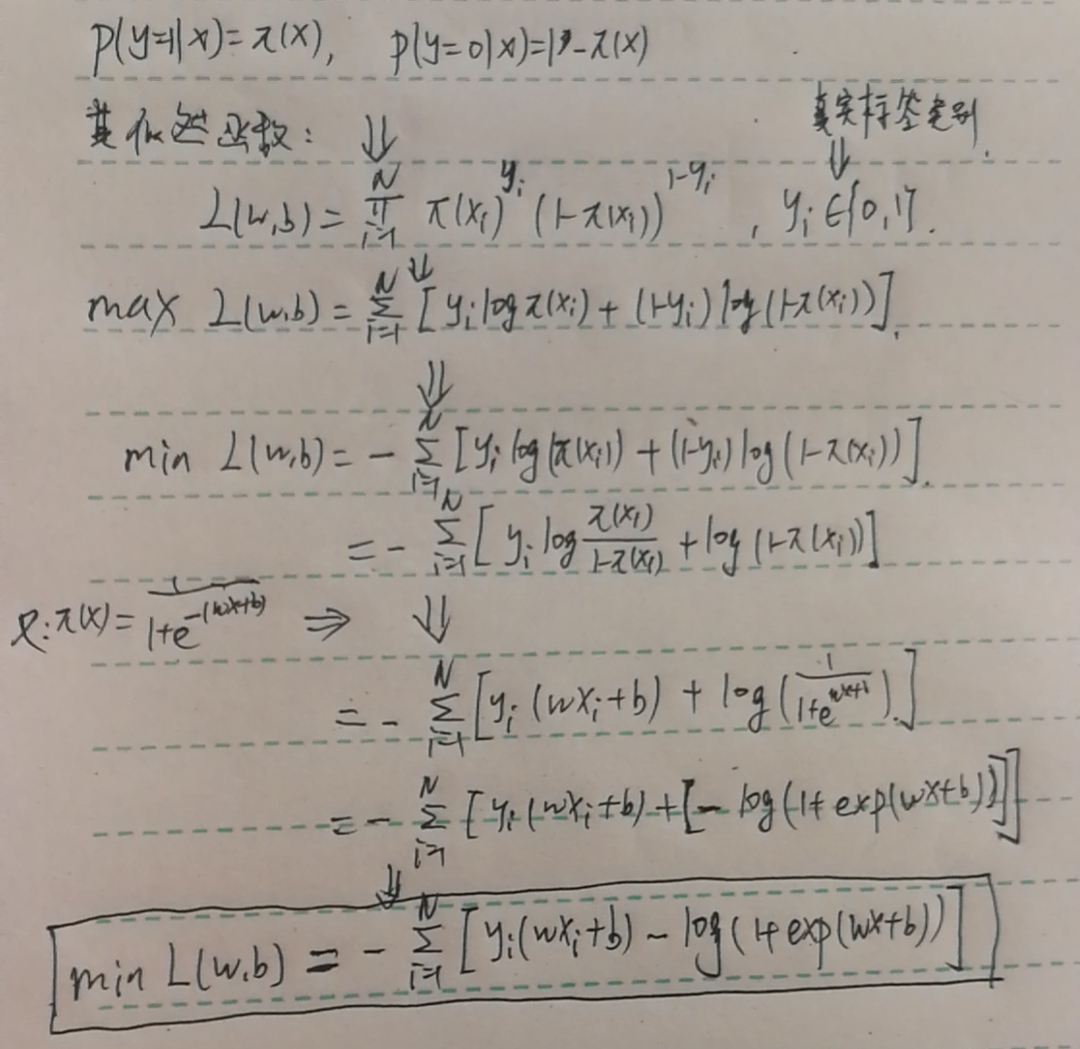 P(y=1|x)=π(x), P(y=0|x)=1-π(x)
真实标签类别.
其似然函数: ⇓
⇓
L(w,b)=∏_{i=1}^{N} π(x_i)^{y_i} (1-π(x_i))^{1-y_i}, y_i∈{0,1}.
⇓
max L(w,b)=∑_{i=1}^{N} [y_i log π(x_i)+(1-y_i) log(1-π(x_i))].
⇓
min L(w,b)=-∑_{i=1}^{N} [y_i log(π(x_i))+(1-y_i) log(1-π(x_i))].
=-∑_{i=1}^{N} [y_i log \frac{π(x_i)}{1-π(x_i)}+log(1-π(x_i))]
:π(x)=\frac{1}{1+e^{-(wx+b)}} ⇒ ⇓
=-∑_{i=1}^{N} [y_i(wx_i+b)+log(\frac{1}{1+e^{wx+b}}).]
=-∑_{i=1}^{N} [y_i(wx_i+b)+[-log(1+exp(wx+b))]]
⇓
min L(w,b)=-∑_{i=1}^{N} [y_i(wx_i+b)-log(1+exp(wx+b))]